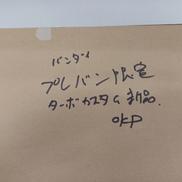 バンダイ
プレバン限定
ターボカスタム 新品.
OKP